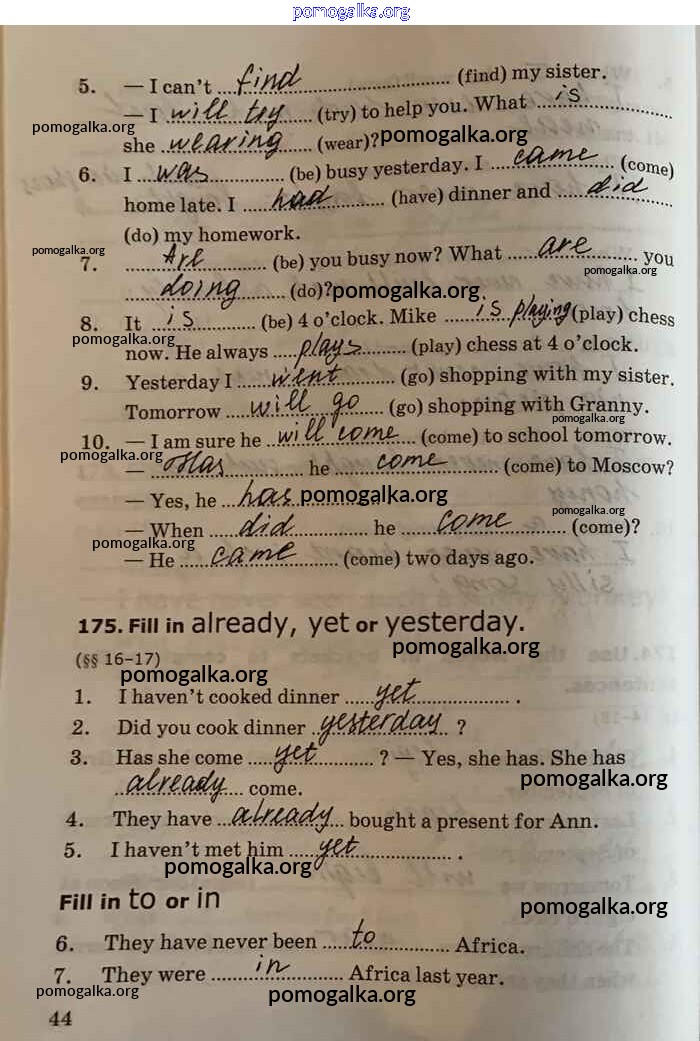 pomogalka.org
5. — I can't ... find ... (find) my sister.
— I ... will try ... (try) to help you. What ... is ...
pomogalka.org
she ... wearing ... (wear)? pomogalka.org
6. I ... was ... (be) busy yesterday. I ... came ... (come)
home late. I ... had ... (have) dinner and ... did ...
(do) my homework.
pomogalka.org
7. ... Are ... (be) you busy now? What ... are ... you
pomogalka.org
... doing ... (do)? pomogalka.org
8. It ... is ... (be) 4 o'clock. Mike ... is playing (play) chess
pomogalka.org
now. He always ... plays ... (play) chess at 4 o'clock.
9. Yesterday I ... went ... (go) shopping with my sister.
Tomorrow ... will go ... (go) shopping with Granny.
pomogalka.org
10. — I am sure he ... will come ... (come) to school tomorrow.
pomogalka.org
— ... Has ... he ... come ... (come) to Moscow?
— Yes, he ... has ... pomogalka.org
pomogalka.org
— When ... did ... he ... come ... (come)?
pomogalka.org
— He ... came ... (come) two days ago.
175. Fill in already, yet or yesterday.
pomogalka.org
(§§ 16–17)
pomogalka.org
1. I haven't cooked dinner ... yet ... .
2. Did you cook dinner ... yesterday ... ?
3. Has she come ... yet ... ? — Yes, she has. She has
pomogalka.org
... already ... come.
4. They have ... already ... bought a present for Ann.
5. I haven't met him ... yet ... .
pomogalka.org
Fill in to or in
pomogalka.org
6. They have never been ... to ... Africa.
7. They were ... in ... Africa last year.
pomogalka.org
pomogalka.org
44